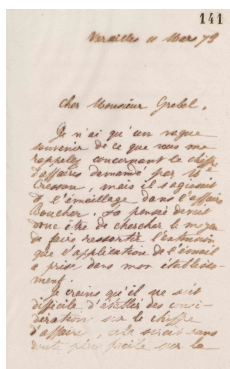 141
Versailles 11 Mars 79
Cher Monsieur Grebel,
Je n'ai qu'un vague
souvenir de ce que vous me
rappelez concernant le chiffre
d'affaires demandé par Mr
Cresson, mais il s'agissait
de l'émaillage dans l'affaire
Boucher. Sa pensée devait
donc être de chercher le moyen
de faire ressortir l'extension
que l'application de l'émail
a prise dans mon établisse-
ment.
Je crains qu'il ne soit
difficile d'étaller des consi-
dération sur le chiffre
d'affaire, cela serait sans
doute plus facile sur la